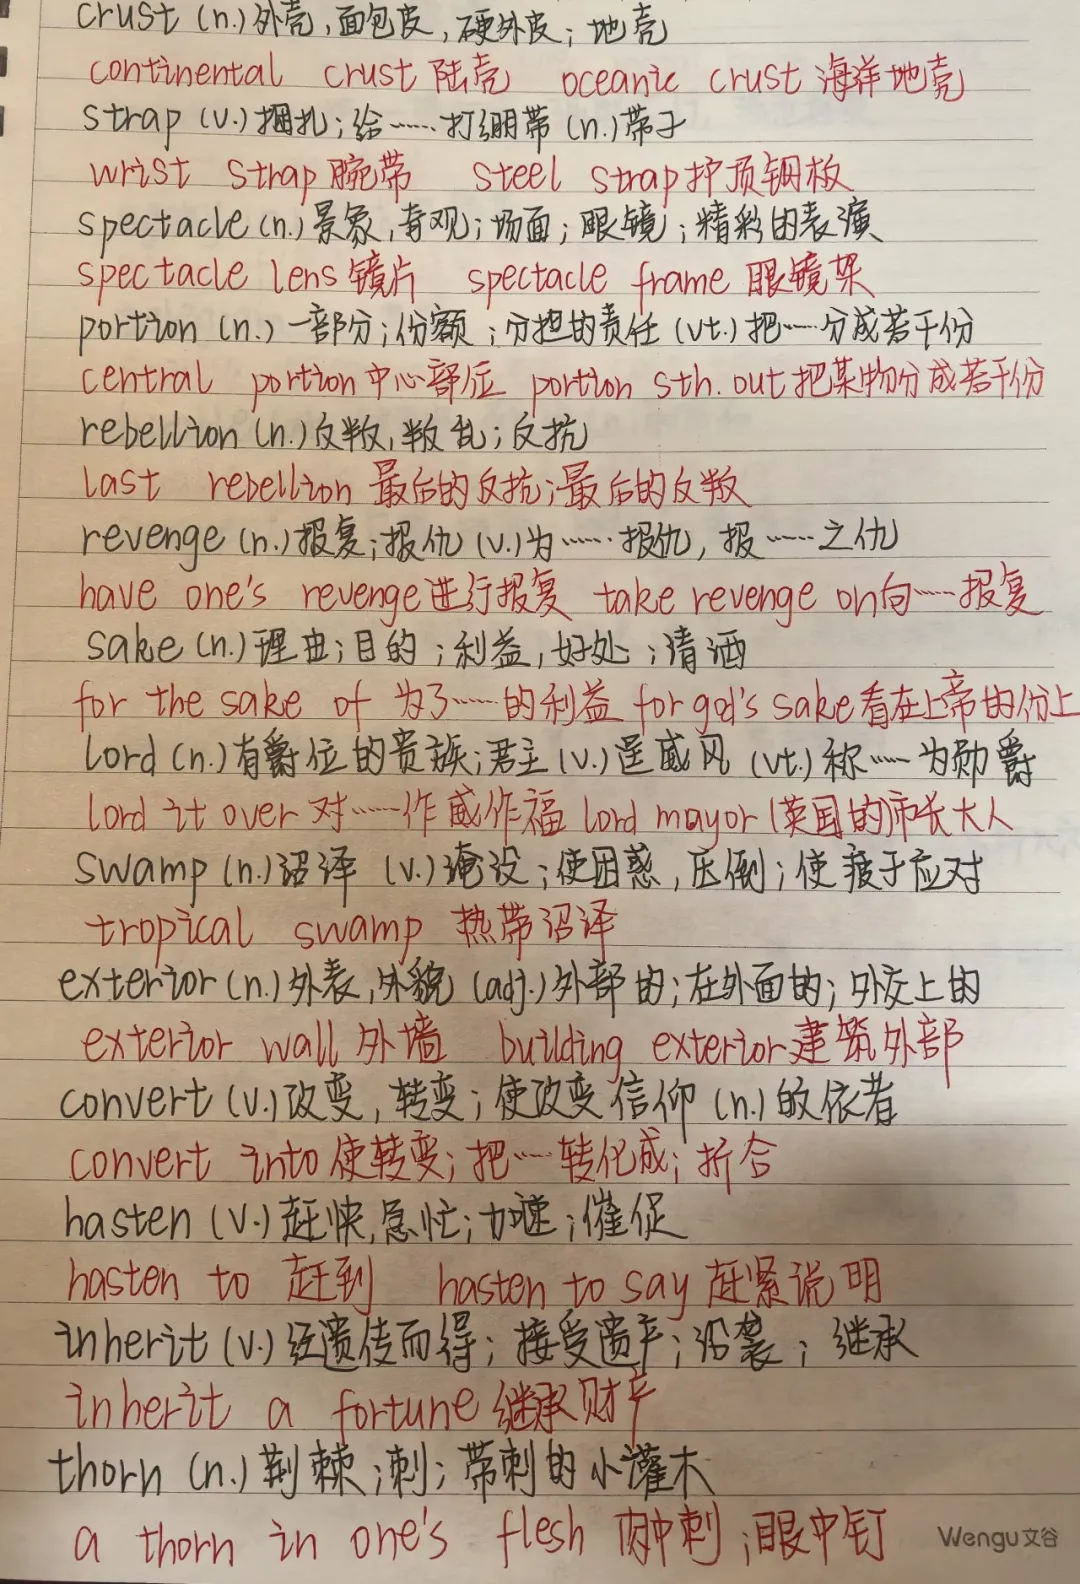 crust (n.)外壳,面包皮,硬外皮;地壳
continental crust 陆壳 oceanic crust 海洋地壳
strap (v.)捆扎;给……打绷带 (n.)带子
wrist strap 腕带 steel strap 护顶钢板
spectacle (n.)景象,奇观;场面;眼镜;精彩的表演
spectacle lens 镜片 spectacle frame 眼镜架
portion (n.)一部分;份额;分担的责任 (vt.)把……分成若干份
central portion 中心部位 portion sth. out 把某物分成若干份
rebellion (n.)反叛,叛乱;反抗
last rebellion 最后的反抗;最后的反叛
revenge (n.)报复;报仇 (v.)为……报仇,报……之仇
have one's revenge 进行报复 take revenge on 向……报复
sake (n.)理由;目的;利益,好处;清酒
for the sake of 为了……的利益 for god's sake 看在上帝的份上
lord (n.)有爵位的贵族;君主 (v.)逞威风 (vt.)称……为勋爵
lord it over 对……作威作福 lord mayor (英国的)市长大人
swamp (n.)沼泽 (v.)淹没;使困惑,压倒;使疲于应对
tropical swamp 热带沼泽
exterior (n.)外表,外貌 (adj.)外部的;在外面的;外交上的
exterior wall 外墙 building exterior 建筑外部
convert (v.)改变,转变;使改变信仰 (n.)皈依者
convert into 使转变;把……转化成;折合
hasten (v.)赶快,急忙;加速;催促
hasten to 赶到 hasten to say 赶紧说明
inherit (v.)经遗传而得;接受遗产;沿袭;继承
inherit a fortune 继承财产
thorn (n.)荆棘;刺;带刺的小灌木
a thorn in one's flesh 肉中刺;眼中钉
Wengu文谷